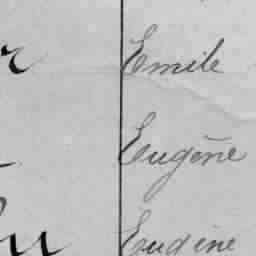 r Emile
Eugène
Eugène